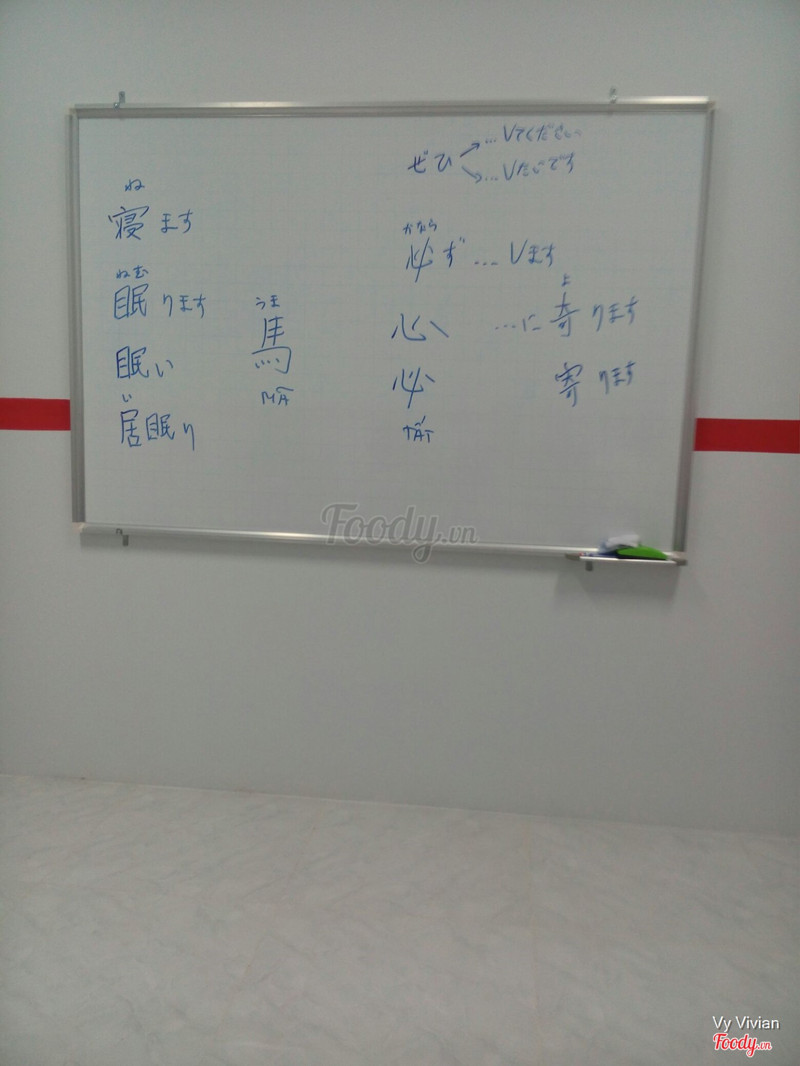 ね
寝ます
ねむ
眠ります
眠い
い
居眠り
うま
馬
MÃ
ぜひ
…Vてください
…Vたいです
かなら
必ず…Vます
心
必
TẤT
よ
…に寄ります
寄ります
Foody.vn
Vy Vivian
Foody.vn